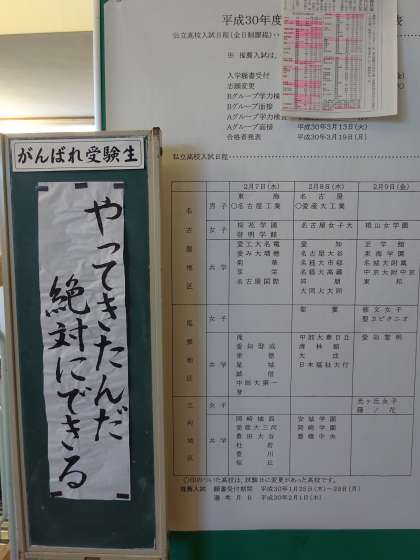 がんばれ受験生
やってきたんだ
絶対にできる
平成30年度
表
公立高校入試日程(全日制課程)
※ 推薦入試は、
入学願書受付
志願変更
Bグループ学力検
Bグループ面接
Aグループ学力検査
Aグループ面接 平成30年3月13日(火)
合格者発表 平成30年3月19日(月)
私立高校入試日程
2月7日(水) 2月8日(木) 2月9日(金)
名古屋地区
男子 東海 名古屋
○名古屋工業 ○愛産大工業
女子 桜花学園 名古屋女子大 椙山女学園
啓明学館
共学 愛工大名電 愛知 至学館
愛み大瑞穂 名古屋大谷 東海学園
菊華 名経大市邨 名城大附属
享栄 名経大高蔵 中京大附中京
名古屋国際 同朋 東邦
大同大大同
尾張地区
女子 聖霊 修文女子
聖カピタニオ
共学 滝 中部大春日丘 愛知黎明
愛知啓成 清林館
栄徳 大成
星城 日本福祉大付
誠信
中部大第一
誉
三河地区
女子 光ヶ丘女子
藤ノ花
共学 岡崎城西 安城学園
愛産大三河 岡崎学園
豊田大谷 豊橋中央
杜若
豊川
桜丘
○印のついた高校は、試験日に変更があった高校です。
推薦入試 願書受付期間 平成30年1月25日(木)~29日(月)
選考月日 平成30年2月1日(木)